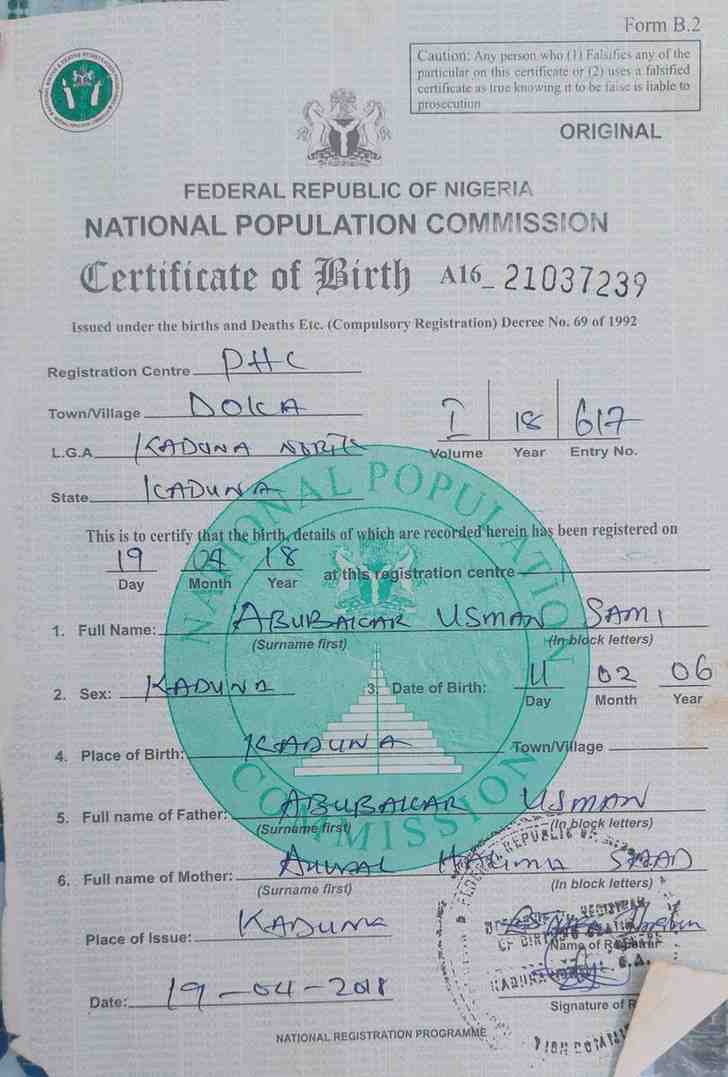 Form B.2
Caution: Any person who (1) Falsifies any of the
particular on this certificate or (2) uses a falsified
certificate as true knowing it to be false is liable to
prosecution
ORIGINAL
FEDERAL REPUBLIC OF NIGERIA
NATIONAL POPULATION COMMISSION
Certificate of Birth A16_ 21037239
Issued under the births and Deaths Etc. (Compulsory Registration) Decree No. 69 of 1992
Registration Centre PHC
Town/Village DOKA
I 18 617
L.G.A KADUNA NORTH
Volume Year Entry No.
State KADUNA
NATIONAL POPULATION
COMMISSION
This is to certify that the birth, details of which are recorded herein has been registered on
19 04 18
Day Month Year at this registration centre
1. Full Name: ABUBAKAR USMAN SAMI
(Surname first) (In block letters)
2. Sex: KADUNA 3. Date of Birth: 11 02 06
Day Month Year
4. Place of Birth: KADUNA Town/Village
5. Full name of Father: ABUBAKAR USMAN
(Surname first) (In block letters)
6. Full name of Mother:
(Surname first) (In block letters)
Place of Issue: KADUNA
Name of Registrar
Date: 19-04-2018
Signature of R
NATIONAL REGISTRATION PROGRAMME